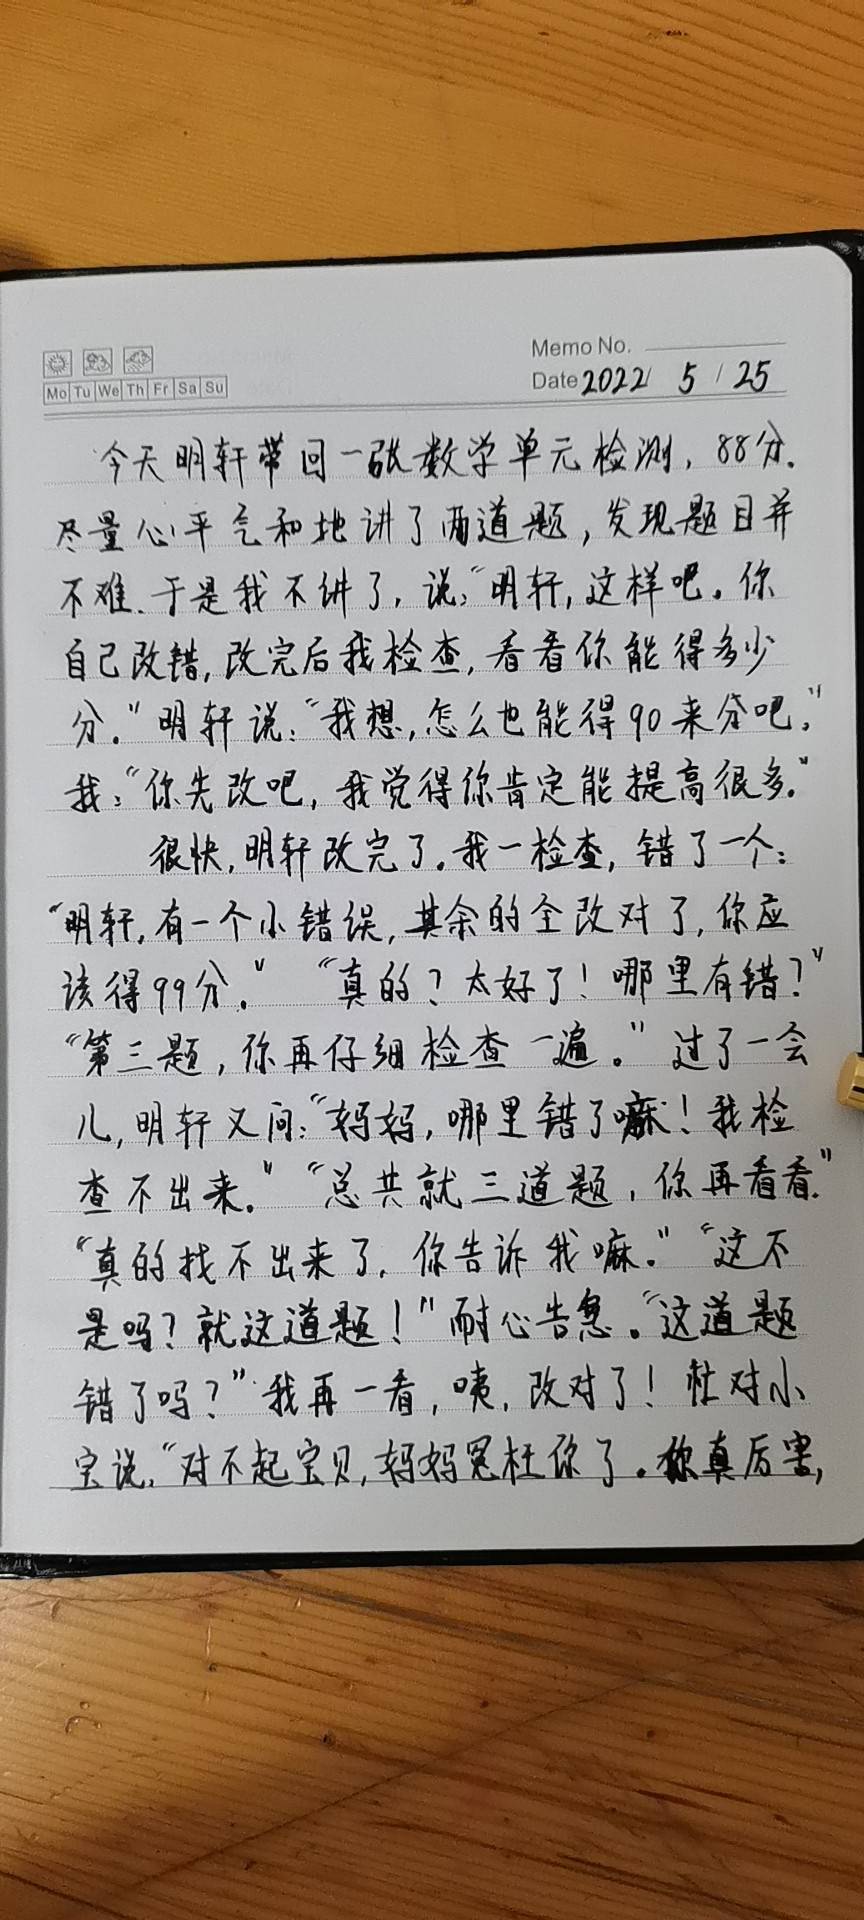 Memo No.
Mo Tu We Th Fr Sa Su
Date 2022/ 5 / 25
今天明轩带回一张数学单元检测，88分。
尽量心平气和地讲了两道题，发现题目并
不难、于是我不讲了，说：“明轩，这样吧。你
自己改错，改完后我检查，看看你能得多少
分。”明轩说：“我想，怎么也能得90来分吧。”
我：“你先改吧，我觉得你肯定能提高很多。”
很快，明轩改完了。我一检查，错了一个：
“明轩，有一个小错误，其余的全改对了，你应
该得99分。”“真的？太好了！哪里有错？”
“第三题，你再仔细检查一遍。”过了一会
儿，明轩又问：“妈妈，哪里错了嘛！我检
查不出来。”“总共就三道题，你再看看。”
“真的找不出来了，你告诉我嘛。”“这不
是吗？就这道题！”耐心告急。“这道题
错了吗？”我再一看，咦，改对了！忙对小
宝说，“对不起宝贝，妈妈冤枉你了。你真厉害，